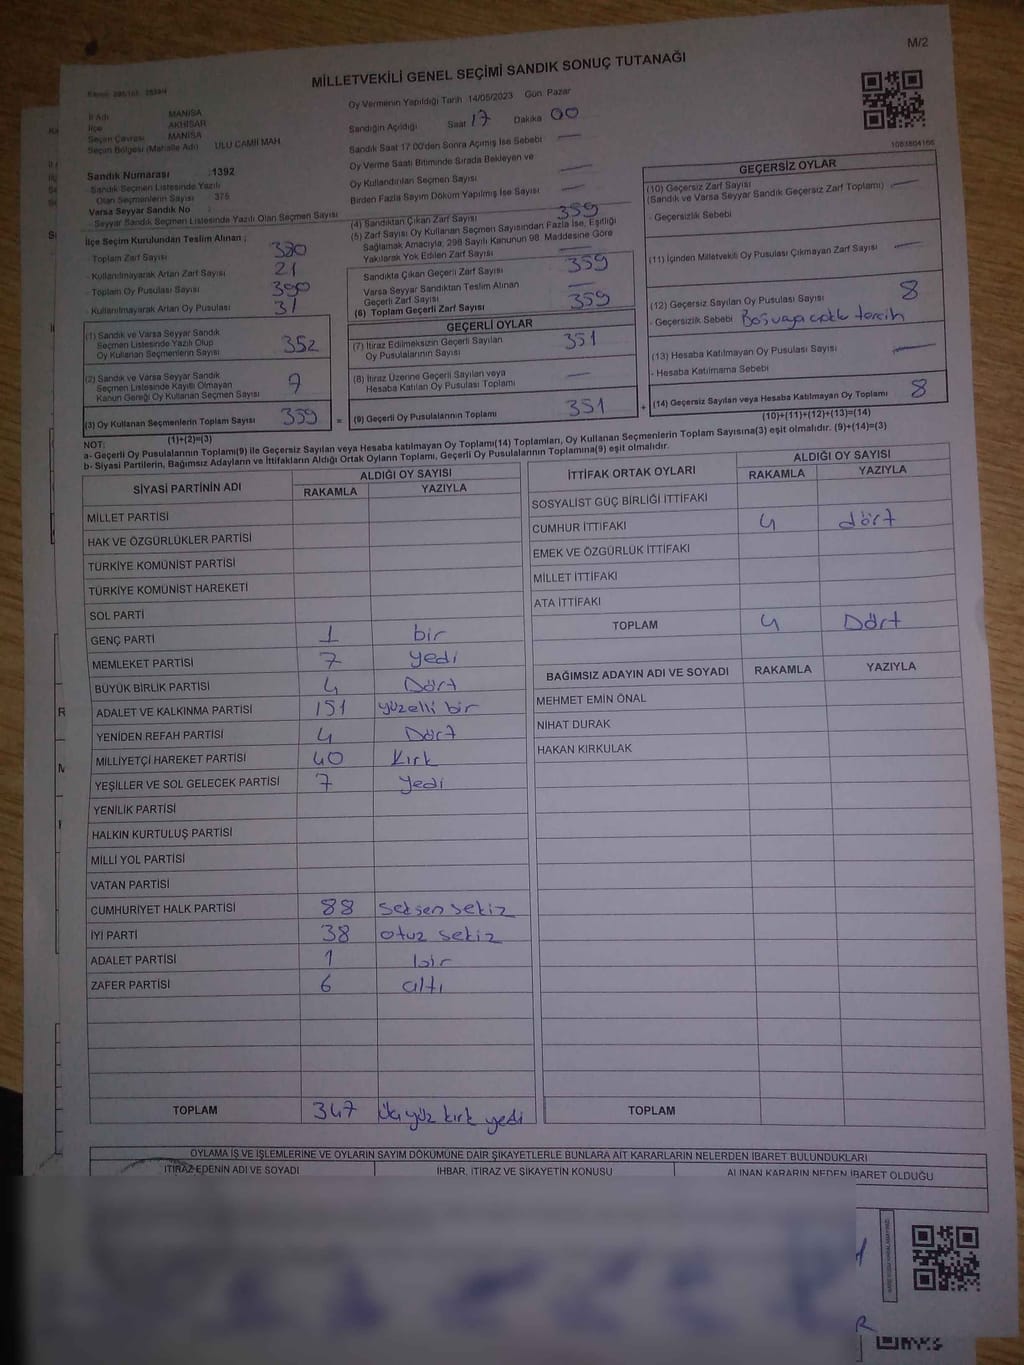 M/2
MİLLETVEKİLİ GENEL SEÇİMİ SANDIK SONUÇ TUTANAĞI
İl Adı MANİSA
İlçe AKHİSAR
Seçim Çevresi MANİSA
Seçim Bölgesi (Mahalle Adı) ULU CAMİİ MAH
Sandık Numarası : 1392
- Sandık Seçmen Listesinde Yazılı
Olan Seçmenlerin Sayısı : 375
Varsa Seyyar Sandık No
- Seyyar Sandık Seçmen Listesinde Yazılı Olan Seçmen Sayısı
Oy Vermenin Yapıldığı Tarih 14/05/2023 Gün Pazar
Sandığın Açıldığı Saat 17 Dakika 00
Sandık Saat 17:00'den Sonra Açılmış İse Sebebi —
Oy Verme Saati Bitiminde Sırada Bekleyen ve
Oy Kullandırılan Seçmen Sayısı —
Birden Fazla Sayım Döküm Yapılmış İse Sayısı —
1083804166
İlçe Seçim Kurulundan Teslim Alınan ;
- Toplam Zarf Sayısı 380
- Kullanılmayarak Artan Zarf Sayısı 21
- Toplam Oy Pusulası Sayısı 390
- Kullanılmayarak Artan Oy Pusulası 31
(1) Sandık ve Varsa Seyyar Sandık
Seçmen Listesinde Yazılı Olup
Oy Kullanan Seçmenlerin Sayısı 352
(2) Sandık ve Varsa Seyyar Sandık
Seçmen Listesinde Kayıtlı Olmayan
Kanun Gereği Oy Kullanan Seçmen Sayısı 7
(3) Oy Kullanan Seçmenlerin Toplam Sayısı 359
(1)+(2)=(3)
(4) Sandıktan Çıkan Zarf Sayısı 359
(5) Zarf Sayısı Oy Kullanan Seçmen Sayısından Fazla İse, Eşitliği
Sağlamak Amacıyla, 298 Sayılı Kanunun 98. Maddesine Göre
Yakılarak Yok Edilen Zarf Sayısı —
Sandıkta Çıkan Geçerli Zarf Sayısı 359
Varsa Seyyar Sandıktan Teslim Alınan
Geçerli Zarf Sayısı —
(6) Toplam Geçerli Zarf Sayısı 359
GEÇERLİ OYLAR
(7) İtiraz Edilmeksizin Geçerli Sayılan
Oy Pusulalarının Sayısı 351
(8) İtiraz Üzerine Geçerli Sayılan veya
Hesaba Katılan Oy Pusulası Toplamı —
= (9) Geçerli Oy Pusulalarının Toplamı 351
GEÇERSİZ OYLAR
(10) Geçersiz Zarf Sayısı
(Sandık ve Varsa Seyyar Sandık Geçersiz Zarf Toplamı) —
- Geçersizlik Sebebi
(11) İçinden Milletvekili Oy Pusulası Çıkmayan Zarf Sayısı —
(12) Geçersiz Sayılan Oy Pusulası Sayısı 8
- Geçersizlik Sebebi Boş veya çoklu tercih
(13) Hesaba Katılmayan Oy Pusulası Sayısı —
- Hesaba Katılmama Sebebi
+ (14) Geçersiz Sayılan veya Hesaba Katılmayan Oy Toplamı 8
(10)+(11)+(12)+(13)=(14)
NOT:
a- Geçerli Oy Pusulalarının Toplamı(9) ile Geçersiz Sayılan veya Hesaba katılmayan Oy Toplamı(14) Toplamları, Oy Kullanan Seçmenlerin Toplam Sayısına(3) eşit olmalıdır. (9)+(14)=(3)
b- Siyasi Partilerin, Bağımsız Adayların ve İttifakların Aldığı Ortak Oyların Toplamı, Geçerli Oy Pusulalarının Toplamına(9) eşit olmalıdır.
SİYASİ PARTİNİN ADI ALDIĞI OY SAYISI
RAKAMLA YAZIYLA
MİLLET PARTİSİ
HAK VE ÖZGÜRLÜKLER PARTİSİ
TÜRKİYE KOMÜNİST PARTİSİ
TÜRKİYE KOMÜNİST HAREKETİ
SOL PARTİ
GENÇ PARTİ 1 bir
MEMLEKET PARTİSİ 7 yedi
BÜYÜK BİRLİK PARTİSİ 4 Dört
ADALET VE KALKINMA PARTİSİ 151 yüzelli bir
YENİDEN REFAH PARTİSİ 4 Dört
MİLLİYETÇİ HAREKET PARTİSİ 40 Kırk
YEŞİLLER VE SOL GELECEK PARTİSİ 7 Yedi
YENİLİK PARTİSİ
HALKIN KURTULUŞ PARTİSİ
MİLLİ YOL PARTİSİ
VATAN PARTİSİ
CUMHURİYET HALK PARTİSİ 88 seksen sekiz
İYİ PARTİ 38 otuz sekiz
ADALET PARTİSİ 1 bir
ZAFER PARTİSİ 6 altı
TOPLAM 347 üç yüz kırk yedi
İTTİFAK ORTAK OYLARI ALDIĞI OY SAYISI
RAKAMLA YAZIYLA
SOSYALİST GÜÇ BİRLİĞİ İTTİFAKI
CUMHUR İTTİFAKI 4 dört
EMEK VE ÖZGÜRLÜK İTTİFAKI
MİLLET İTTİFAKI
ATA İTTİFAKI
TOPLAM 4 Dört
BAĞIMSIZ ADAYIN ADI VE SOYADI RAKAMLA YAZIYLA
MEHMET EMİN ÖNAL
NİHAT DURAK
HAKAN KIRKULAK
TOPLAM
OYLAMA İŞ VE İŞLEMLERİNE VE OYLARIN SAYIM DÖKÜMÜNE DAİR ŞİKAYETLERLE BUNLARA AİT KARARLARIN NELERDEN İBARET BULUNDUKLARI
İTİRAZ EDENİN ADI VE SOYADI İHBAR, İTİRAZ VE ŞİKAYETİN KONUSU ALINAN KARARIN NEDEN İBARET OLDUĞU